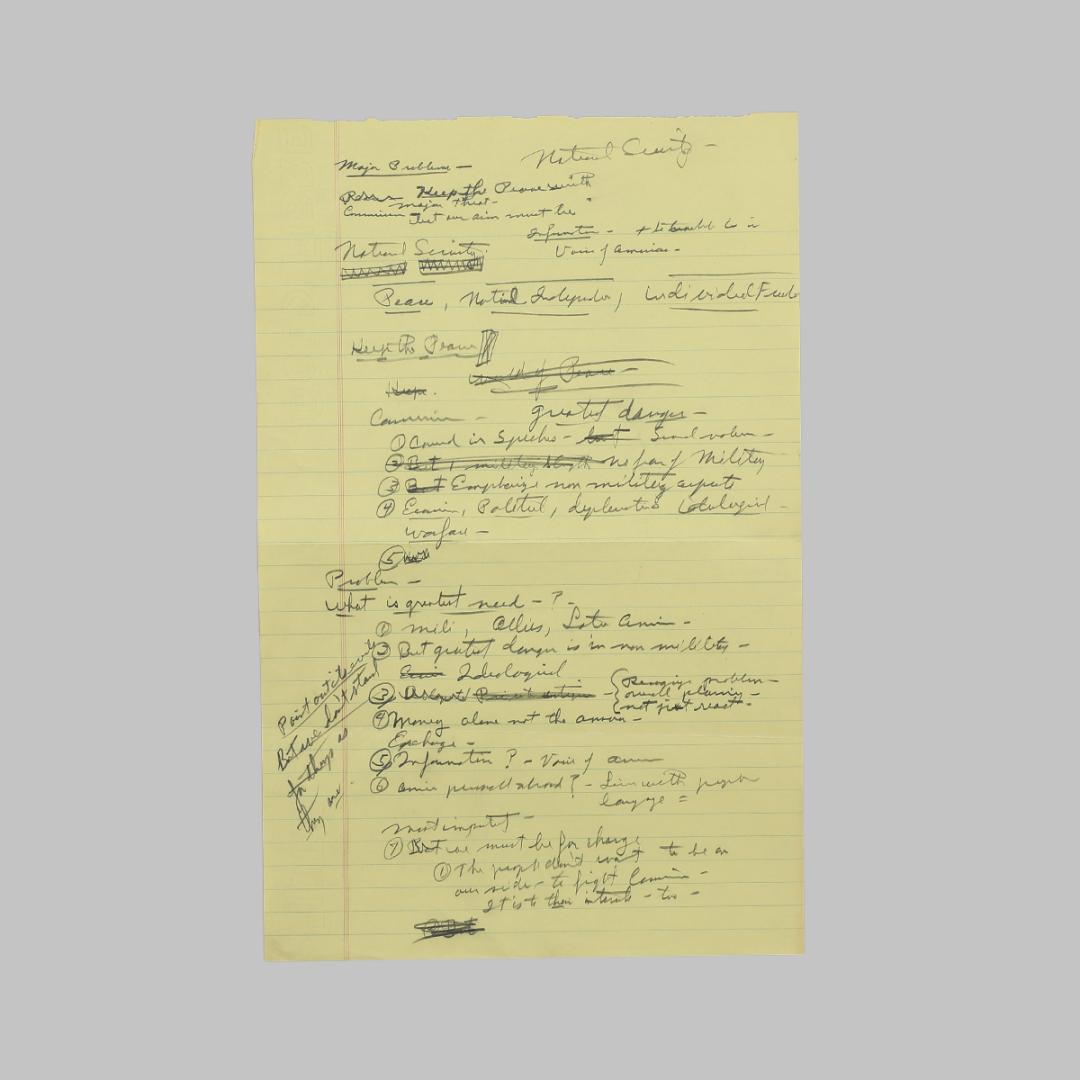 National Security -
Major Problems -
Keep the Peace with
major threat -
Communism - But our aim must be
Information -
Voice of America -
National Security
Peace, National Independence, Individual Freedom
Keep the Peace
World of Peace -
Keep.
Communism - greatest danger -
① Covered in Speeches - but
② But military strength no fan of Military
③ But Emphasize non military aspects
④ Economic, Political, diplomatic ideological -
warfare -
⑤
Problem -
What is greatest need - ?
① mili, Allies, Latin Amer -
② But greatest danger is in non military -
Econ Ideological
③ { Recognize problem -
overall planning -
not just react -
④ Money alone not the answer -
Exchange -
⑤ Information ? - Voice of Amer
⑥ Amer personnel abroad ? - Live with people
language =
most important -
⑦ But we must be for change
① The people don't want to be on
our side - to fight Commun -
It is to their interests - too -
Point out its evils
But we don't stand
for things as
they are